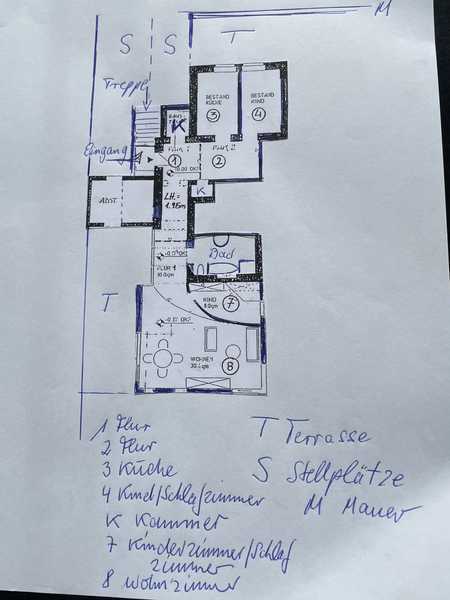 M
S S T
Treppe
BESTAND
KÜCHE
3
BESTAND
KIND
4
K
Eingang
1
2
ABST.
K
LH=
1.95m
Bad
FLUR 1
T
KIND
7
WOHNEN
8
1 Flur
2 Flur
3 Küche
4 Kind/Schlafzimmer
K Kammer
7 Kinderzimmer/Schlaf
zimmer
8 Wohnzimmer
T Terrasse
S Stellplätze
M Mauer